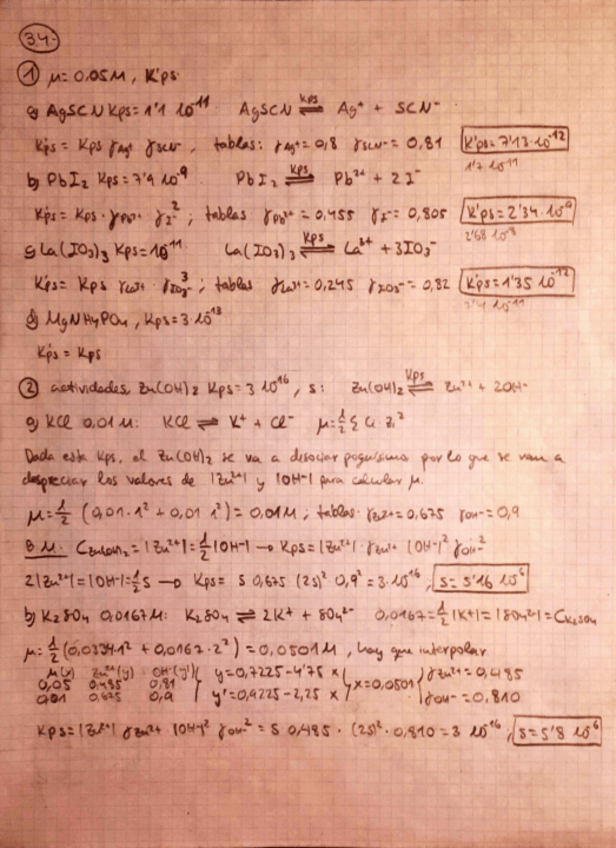 34.-
① μ = 0,05M, K'ps.
a) AgSCN Kps = 1'1 10⁻¹¹ AgSCN ⇌ Ag⁺ + SCN⁻ Kps
K'ps = Kps γAg⁺ γSCN⁻, tablas: γAg⁺ = 0,8 γSCN⁻ = 0,81 K'ps = 7'13·10⁻¹²
1'7 10⁻¹¹
b) PbI₂ Kps = 7'9 10⁻⁹ PbI₂ ⇌ Pb²⁺ + 2I⁻ Kps
K'ps = Kps · γPb²⁺ γI⁻²; tablas γPb²⁺ = 0,455 γI⁻ = 0,805 K'ps = 2'34·10⁻⁹
2'68 10⁻⁸
c) La(IO₃)₃ Kps = 10⁻¹¹ La(IO₃)₃ ⇌ La³⁺ + 3IO₃⁻ Kps
K'ps = Kps γLa³⁺ · γIO₃⁻³; tablas γLa³⁺ = 0,245 γIO₃⁻ = 0,82 K'ps = 1'35 10⁻¹²
10⁻¹¹
d) MgNH₄PO₄, Kps = 3·10⁻¹³
K'ps = Kps
② actividades, Zn(OH)₂ Kps = 3 10⁻¹⁶, s: Zn(OH)₂ ⇌ Zn²⁺ + 2OH⁻ Kps
a) KCl 0,01M: KCl ⇌ K⁺ + Cl⁻ μ = 1/2 Σ Ci Zi²
Dada esta Kps, el Zn(OH)₂ se va a disociar poquísimo por lo que se van a
despreciar los valores de |Zn²⁺| y |OH⁻| para calcular μ.
μ = 1/2 (0,01·1² + 0,01 1²) = 0,01M; tablas· γZn²⁺ = 0,675 γOH⁻ = 0,9
B.M. CZn(OH)₂ = |Zn²⁺| = 1/2 |OH⁻| → Kps = |Zn²⁺| · γZn²⁺ |OH⁻|² γOH⁻²
2|Zn²⁺| = |OH⁻| = 1/2 s → Kps = s 0,675 (2s)² 0,9² = 3·10⁻¹⁶, s = 5'16 10⁻⁶
b) K₂SO₄ 0,0167M: K₂SO₄ ⇌ 2K⁺ + SO₄²⁻ 0,0167 = 1/2 |K⁺| = |SO₄²⁻| = CK₂SO₄
μ = 1/2 (0,0334·1² + 0,0167·2²) = 0,0501M, hay que interpolar
μ(x) Zn²⁺(y) OH⁻(y')
0,05 0,485 0,81 y = 0,7225 - 4'75 x x = 0,0501 γZn²⁺ = 0,485
0,01 0,675 0,9 y' = 0,9225 - 2,25 x γOH⁻ = 0,810
Kps = |Zn²⁺| γZn²⁺ · |OH⁻|² γOH⁻² = s 0,485 · (2s)² · 0,810 = 3 10⁻¹⁶; s = 5'8 10⁻⁶